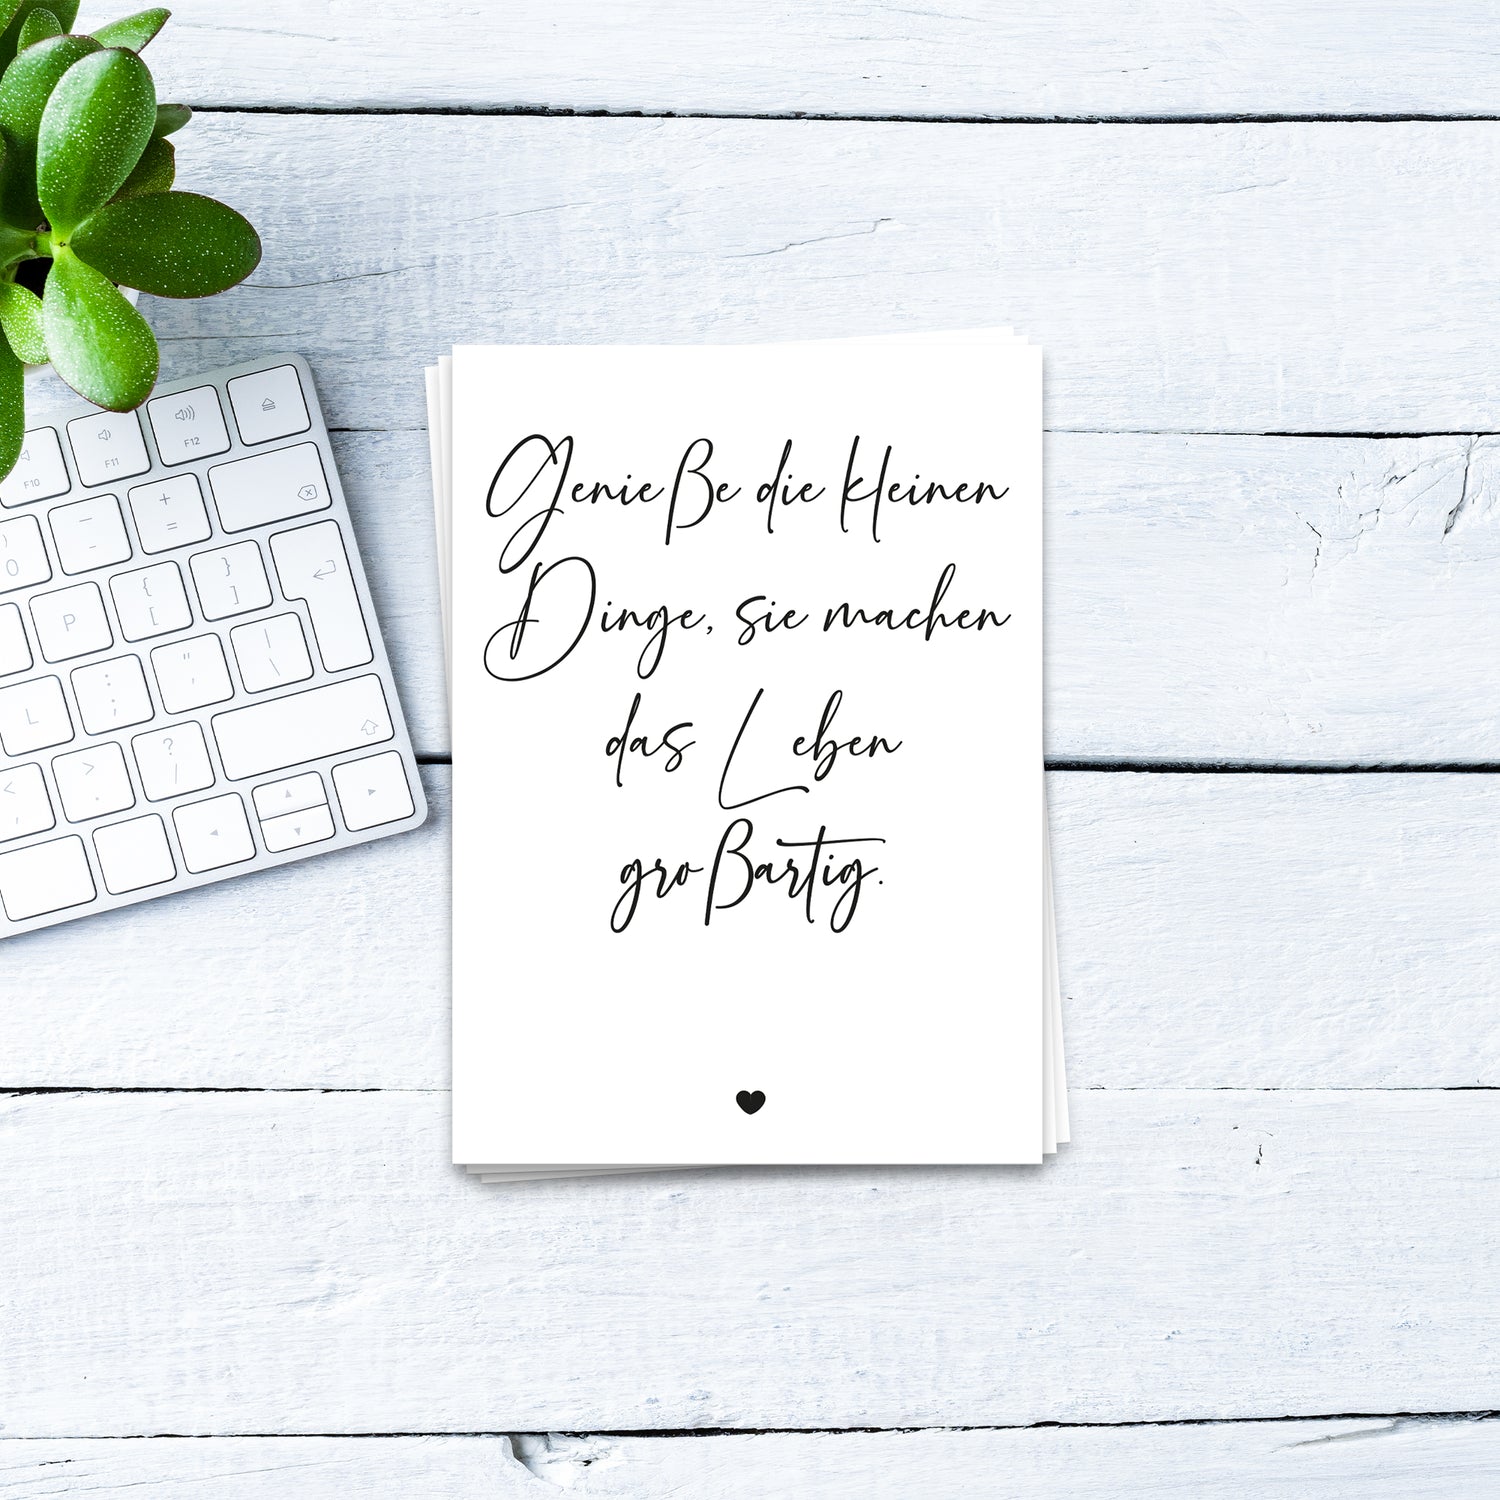 Genieße die kleinen
Dinge, sie machen
das Leben
großartig.
F10
F11
F12
+
=
-
-
)
0
{
[
}
]
P
|
\
"
'
:
;
L
?
/
>
.
<
,